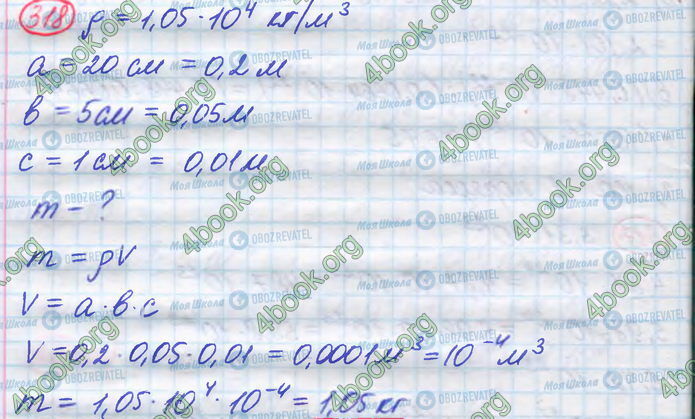 318 ρ = 1,05·10⁴ кг/м³
a = 20 см = 0,2 м
в = 5 см = 0,05 м
c = 1 см = 0,01 м
m - ?
m = ρV
V = a·в·c
V = 0,2·0,05·0,01 = 0,0001 м³ = 10⁻⁴ м³
m = 1,05·10⁴·10⁻⁴ = 1,05 кг
4book.org
Моя Школа
OBOZREVATEL